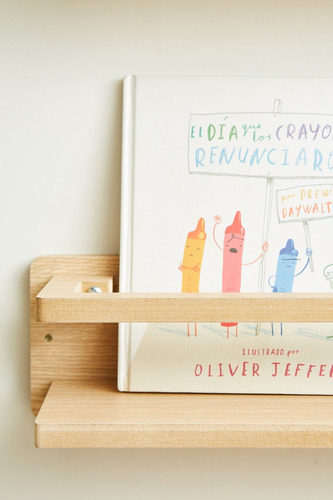 EL DÍA que los CRAYO
RENUNCIARO
por DREW
DAYWALT
ILUSTRADO por
OLIVER JEFFE